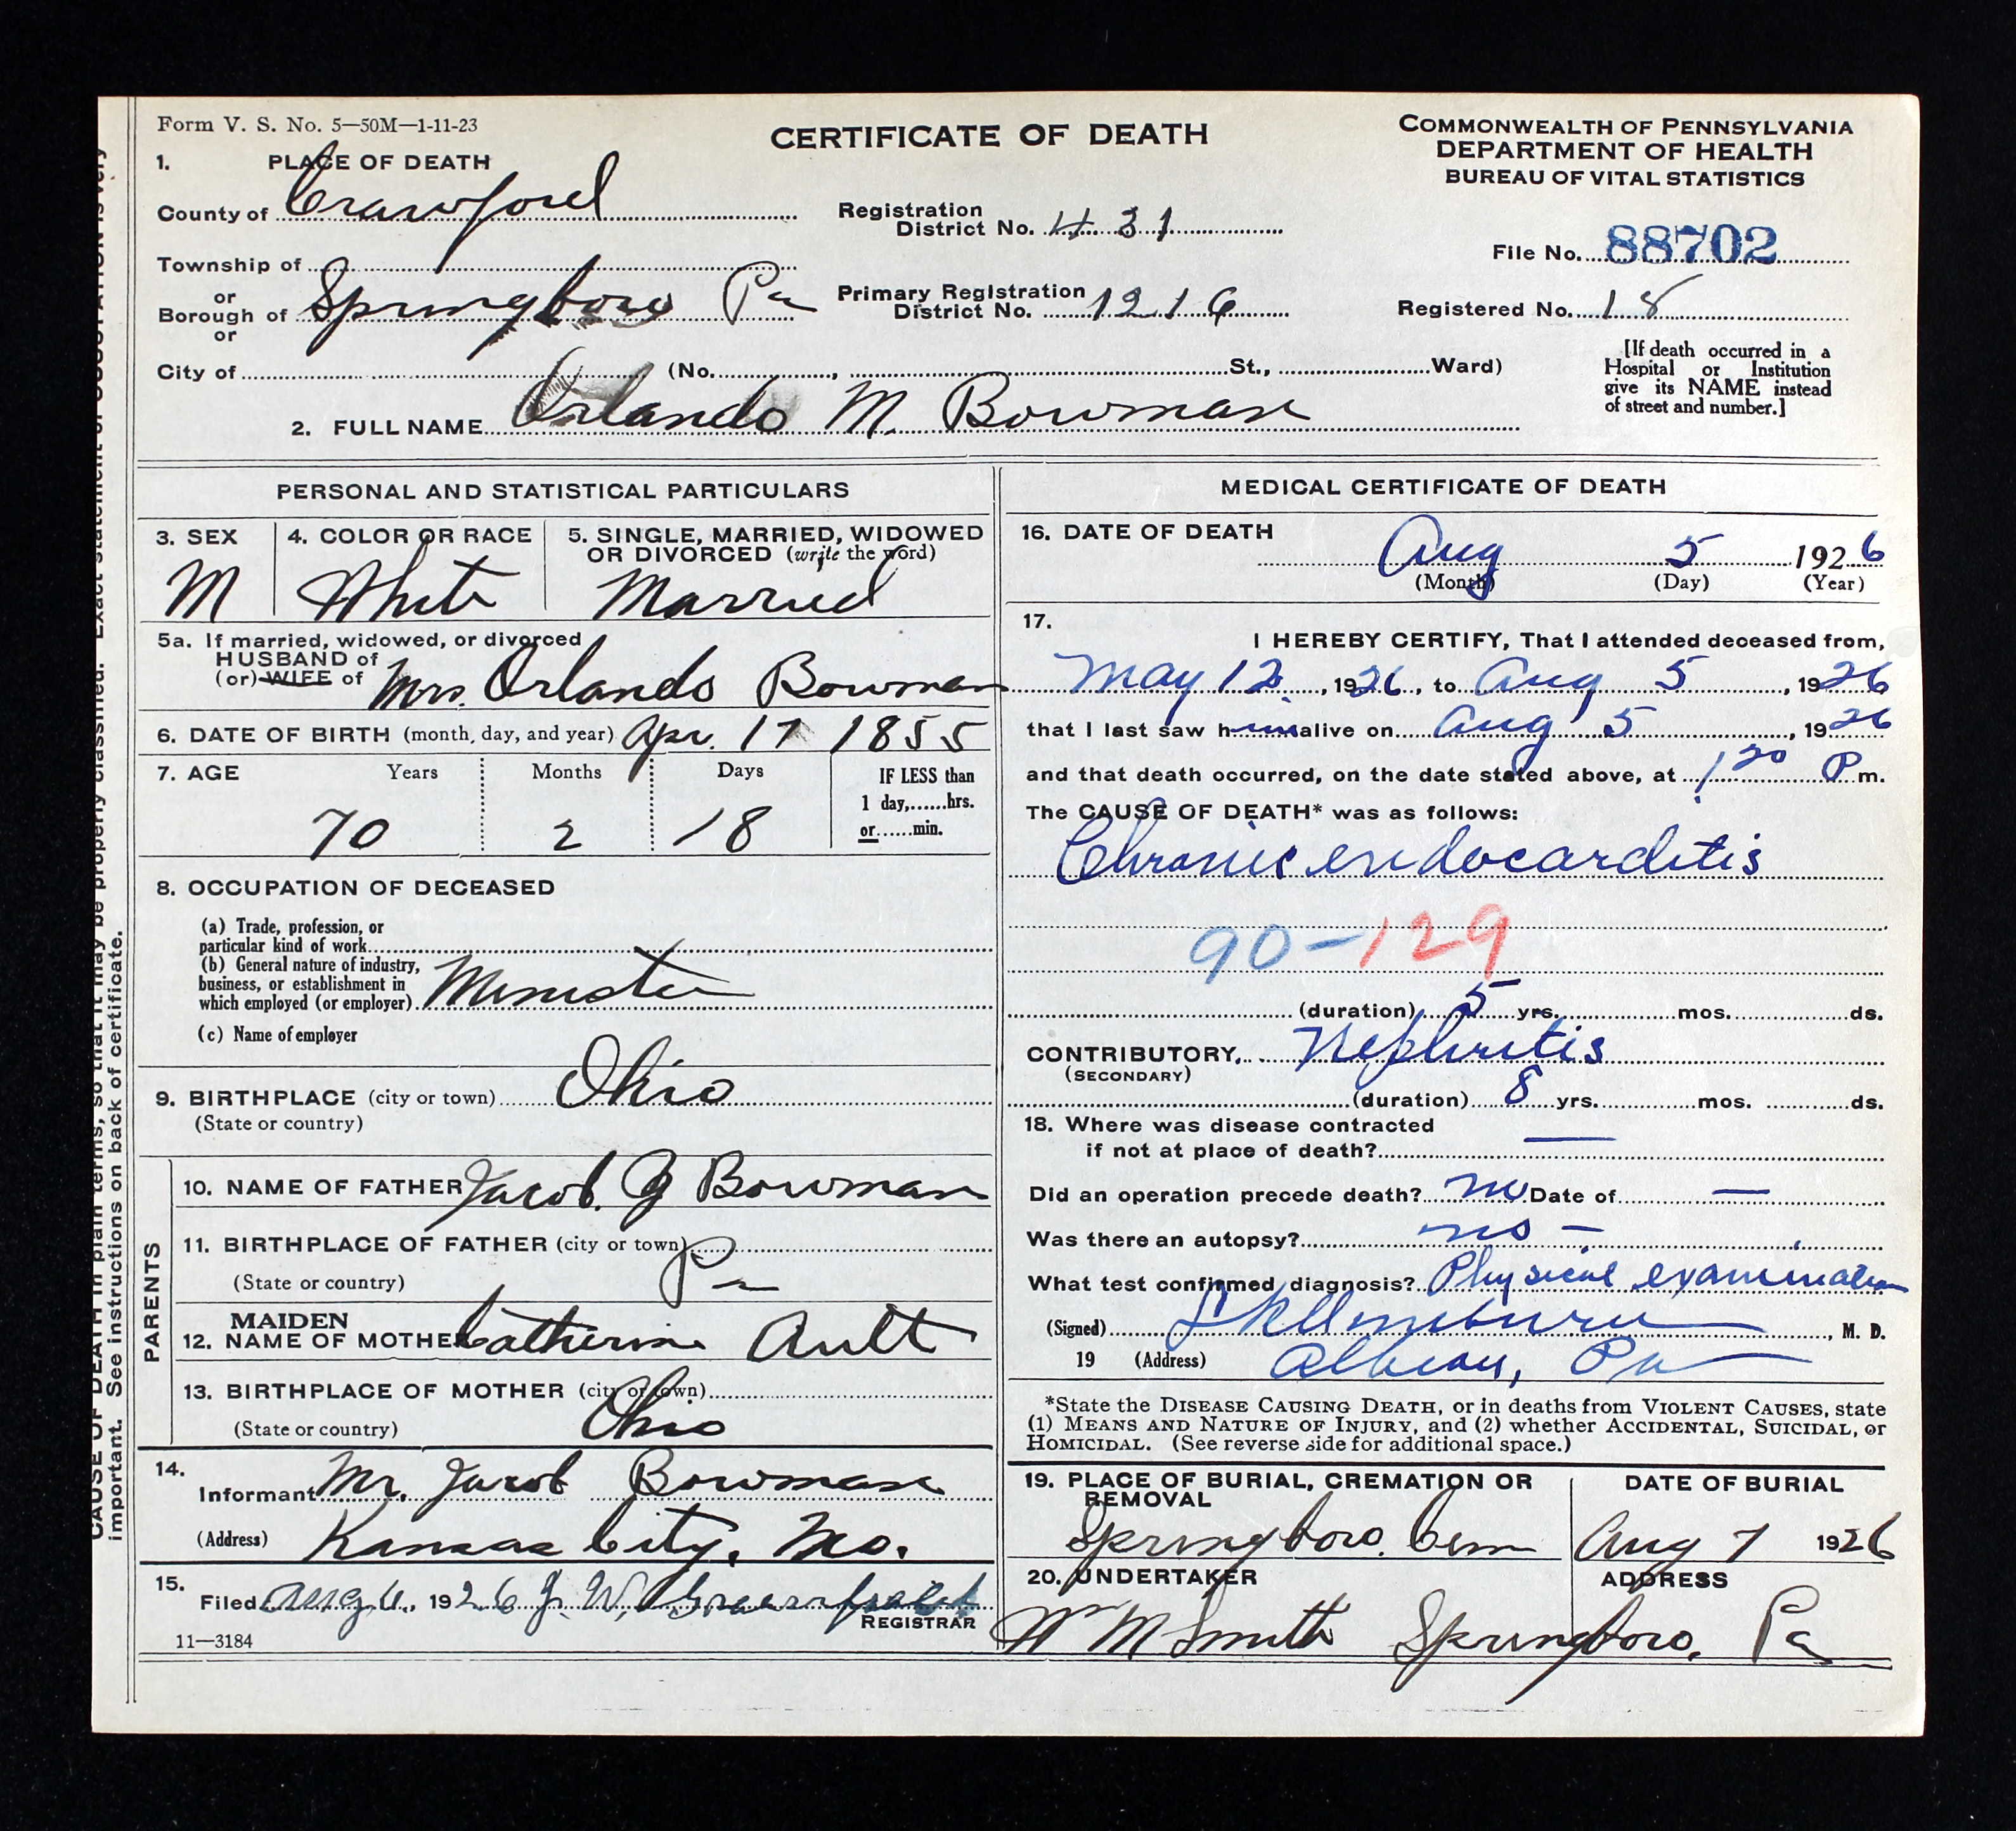 Form V. S. No. 5—50M—1-11-23
CERTIFICATE OF DEATH
COMMONWEALTH OF PENNSYLVANIA
DEPARTMENT OF HEALTH
BUREAU OF VITAL STATISTICS
1. PLACE OF DEATH
County of Crawford
Registration District No. 431
File No. 88702
Township of
or
Borough of Springboro Pa
or
Primary Registration District No. 1216
Registered No. 18
City of (No. , St., Ward)
[If death occurred in a
Hospital or Institution
give its NAME instead
of street and number.]
2. FULL NAME Orlando M. Bowman
PERSONAL AND STATISTICAL PARTICULARS
3. SEX
M
4. COLOR OR RACE
White
5. SINGLE, MARRIED, WIDOWED
OR DIVORCED (write the word)
Married
5a. If married, widowed, or divorced
HUSBAND of
(or) WIFE of Mrs. Orlando Bowman
6. DATE OF BIRTH (month, day, and year) Apr. 17 1855
7. AGE Years Months Days
70 2 18
IF LESS than
1 day,......hrs.
or......min.
8. OCCUPATION OF DECEASED
(a) Trade, profession, or
particular kind of work
(b) General nature of industry,
business, or establishment in
which employed (or employer) Minister
(c) Name of employer
9. BIRTHPLACE (city or town) Ohio
(State or country)
PARENTS
10. NAME OF FATHER Jacob. G Bowman
11. BIRTHPLACE OF FATHER (city or town)
(State or country) Pa
12. MAIDEN NAME OF MOTHER Catherine Ault
13. BIRTHPLACE OF MOTHER (city or town)
(State or country) Ohio
14.
Informant Mr. Jacob Bowman
(Address) Kansas City, Mo.
15.
Filed Aug 6, 1926 J. W.
REGISTRAR
11—3184
MEDICAL CERTIFICATE OF DEATH
16. DATE OF DEATH
Aug 5 1926
(Month) (Day) (Year)
17.
I HEREBY CERTIFY, That I attended deceased from,
May 12, 1926, to Aug 5, 1926
that I last saw him alive on Aug 5, 1926
and that death occurred, on the date stated above, at 1 20 P m.
The CAUSE OF DEATH* was as follows:
Chronic endocarditis
90-129
(duration) 5 yrs. mos. ds.
CONTRIBUTORY Nephritis
(SECONDARY)
(duration) 8 yrs. mos. ds.
18. Where was disease contracted
if not at place of death? —
Did an operation precede death? no Date of —
Was there an autopsy? no —
What test confirmed diagnosis? Physical examination
(Signed) , M. D.
19 (Address) Albion, Pa
*State the DISEASE CAUSING DEATH, or in deaths from VIOLENT CAUSES, state
(1) MEANS AND NATURE OF INJURY, and (2) whether ACCIDENTAL, SUICIDAL, or
HOMICIDAL. (See reverse side for additional space.)
19. PLACE OF BURIAL, CREMATION OR
REMOVAL
Springboro. Cem
DATE OF BURIAL
Aug 7 1926
20. UNDERTAKER
Wm M Smith
ADDRESS
Springboro, Pa
CAUSE OF DEATH in plain terms, so that it may be properly classified. Exact statement of OCCUPATION is very
important. See instructions on back of certificate.